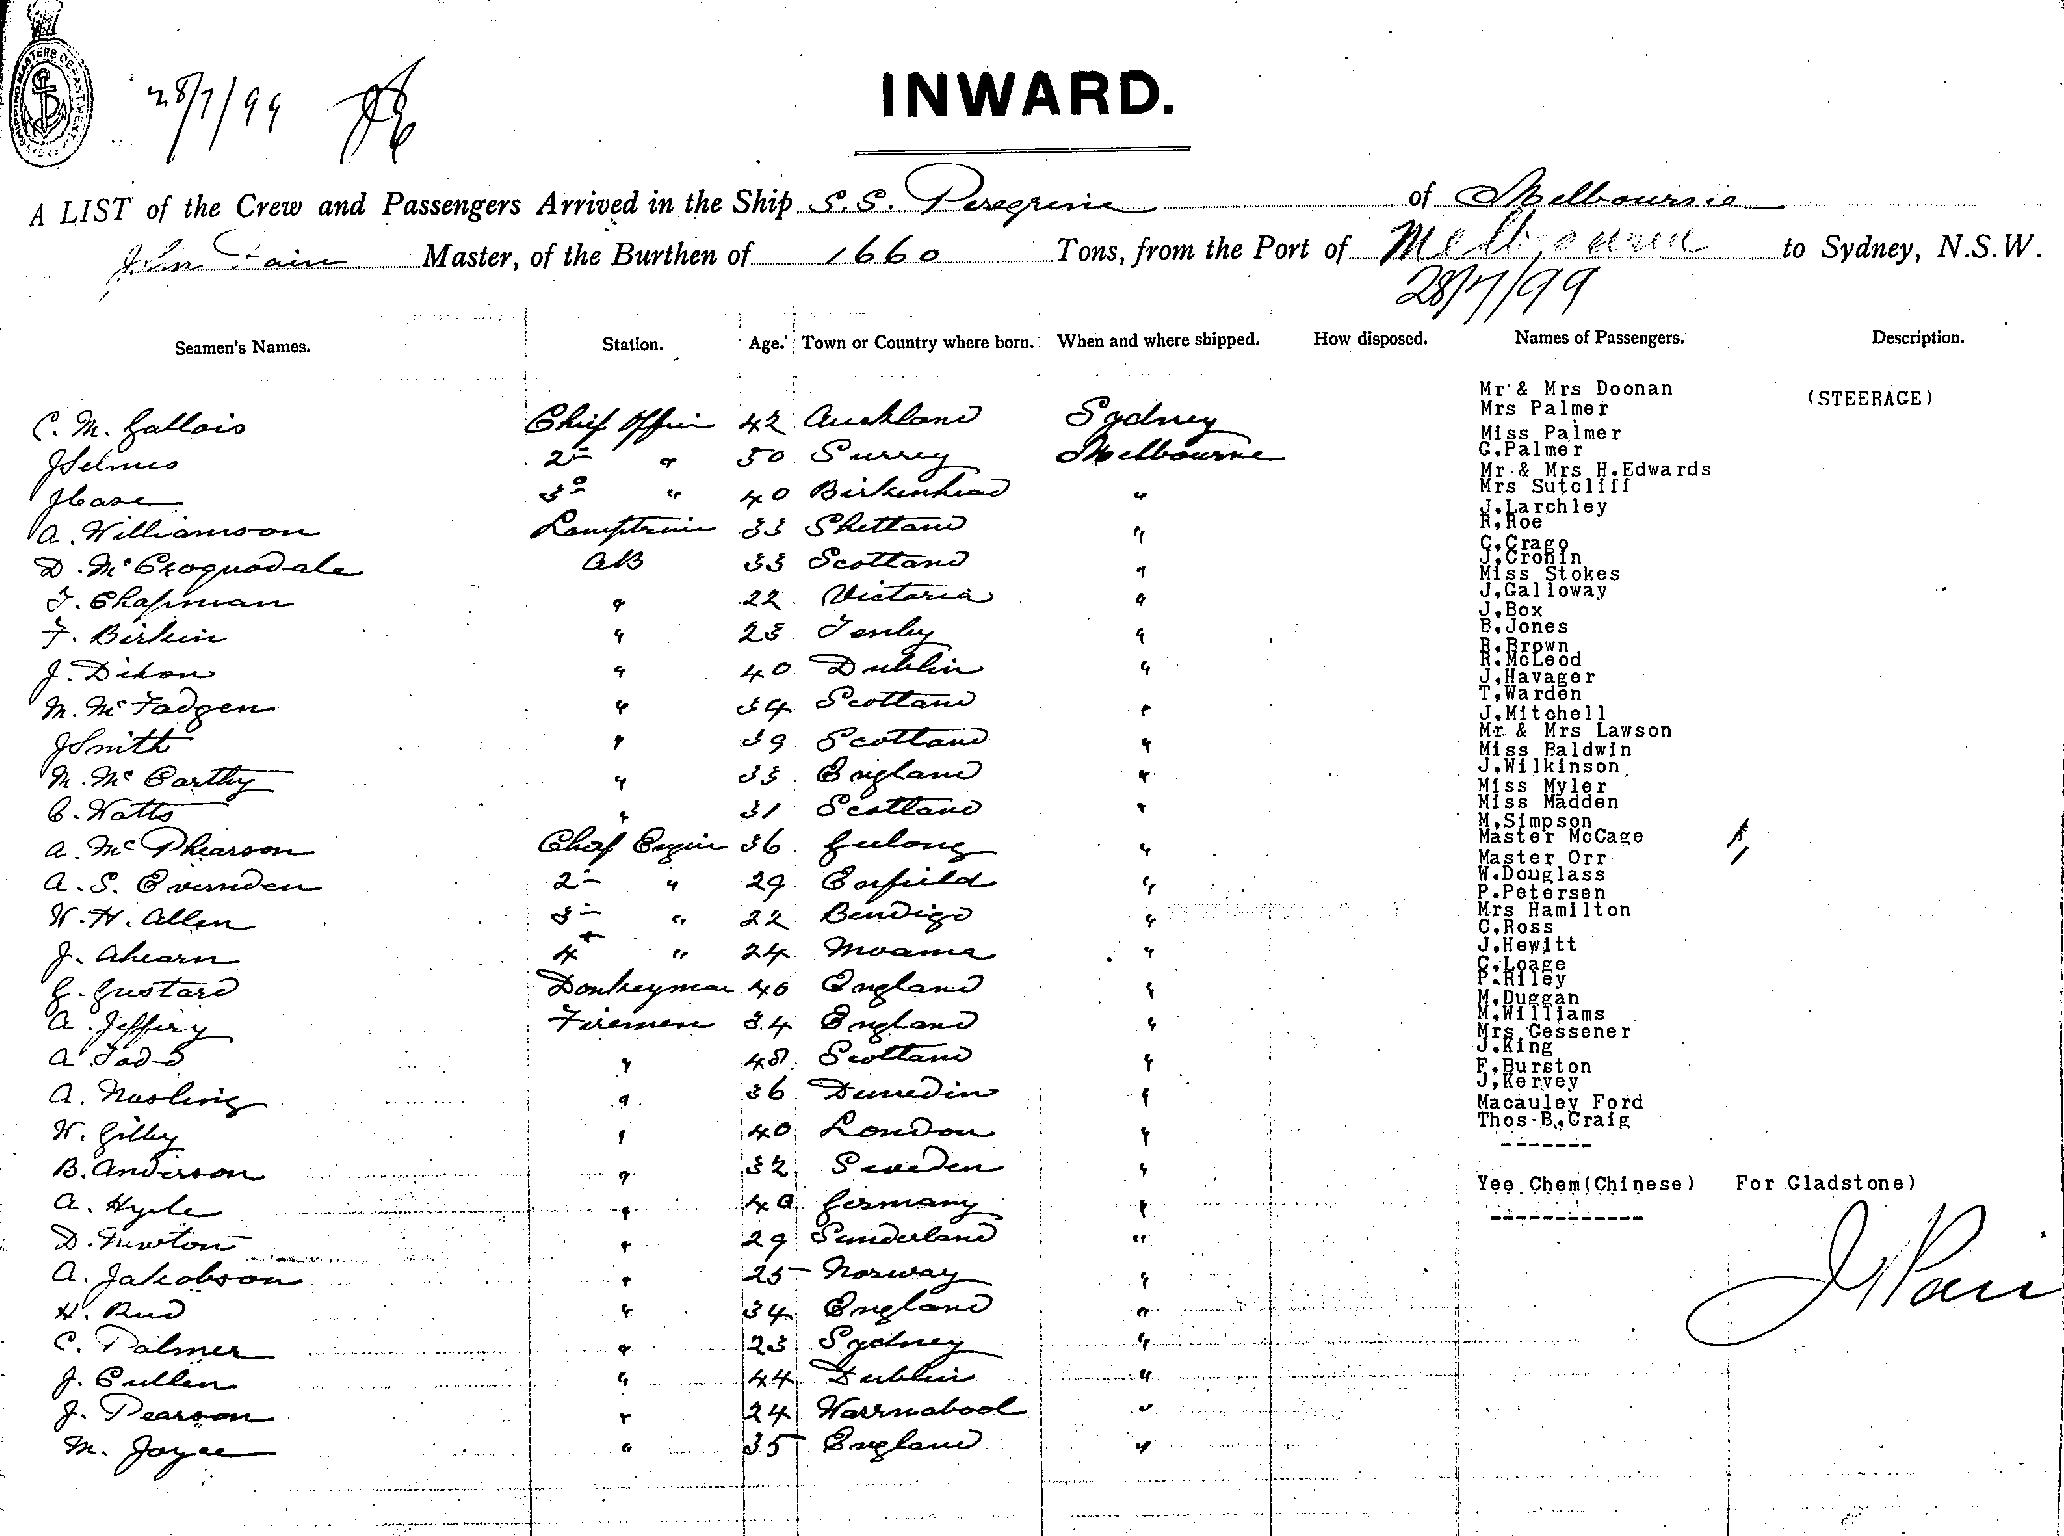 28/7/99
INWARD.
A LIST of the Crew and Passengers Arrived in the Ship S.S. Peregrine of Melbourne
John Pain Master, of the Burthen of 1660 Tons, from the Port of Melbourne to Sydney, N.S.W.
28/7/99
Seamen's Names. Station. Age. Town or Country where born. When and where shipped. How disposed. Names of Passengers. Description.
C. M. Gallois Chief Officer 42 Auckland Sydney
J Selmes 2nd " 50 Surrey Melbourne
J Case 3rd " 40 Birkenhead "
A. Williamson Lamptrimr 33 Shetland "
D. McCroquodale AB 33 Scotland "
T. Chapman " 22 Victoria "
F. Birkin " 23 Tenby "
J. Dixon " 40 Dublin "
M. McFadgen " 34 Scotland "
J Smith " 39 Scotland "
M. McCarthy " 33 England "
C. Watts " 31 Scotland "
A. McPhearson Chief Engin 36 Geelong "
A. S. Evernden 2nd " 29 "
W. H. Allen 3rd " 22 Bendigo "
J. Ahearn 4th " 24 Moama "
G. Gustard Donkeyman 40 England "
A. Jeffery Firemen 34 England "
A. Todd " 48 Scotland "
A. Nosling " 36 Dunedin "
W. Gilby " 40 London "
B. Anderson " 32 Sweden "
A. Hyde " 40 Germany "
D. Newton " 29 Sunderland "
A. Jakobson " 25 Norway "
H. Rud " 34 England "
C. Palmer " 23 Sydney "
J. Cullen " 44 Dublin "
J. Pearson " 24 Warrnabool "
M. Joyce " 35 England "
Mr & Mrs Doonan (STEERAGE)
Mrs Palmer
Miss Palmer
G.Palmer
Mr & Mrs H.Edwards
Mrs Sutcliff
J.Larchley
R.Roe
C.Crago
J.Cronin
Miss Stokes
J.Galloway
J.Box
B.Jones
B.Brown
R.McLeod
J.Havager
T.Warden
J.Mitchell
Mr & Mrs Lawson
Miss Baldwin
J.Wilkinson
Miss Myler
Miss Madden
M.Simpson
Master McCage
Master Orr
W.Douglass
P.Petersen
Mrs Hamilton
C.Ross
J.Hewitt
C.Loage
P.Riley
M.Duggan
M.Williams
Mrs Gessener
J.King
F.Burston
J.Kervey
Macauley Ford
Thos B.Craig
-------
Yee Chem(Chinese) For Gladstone)
------------
J Pain